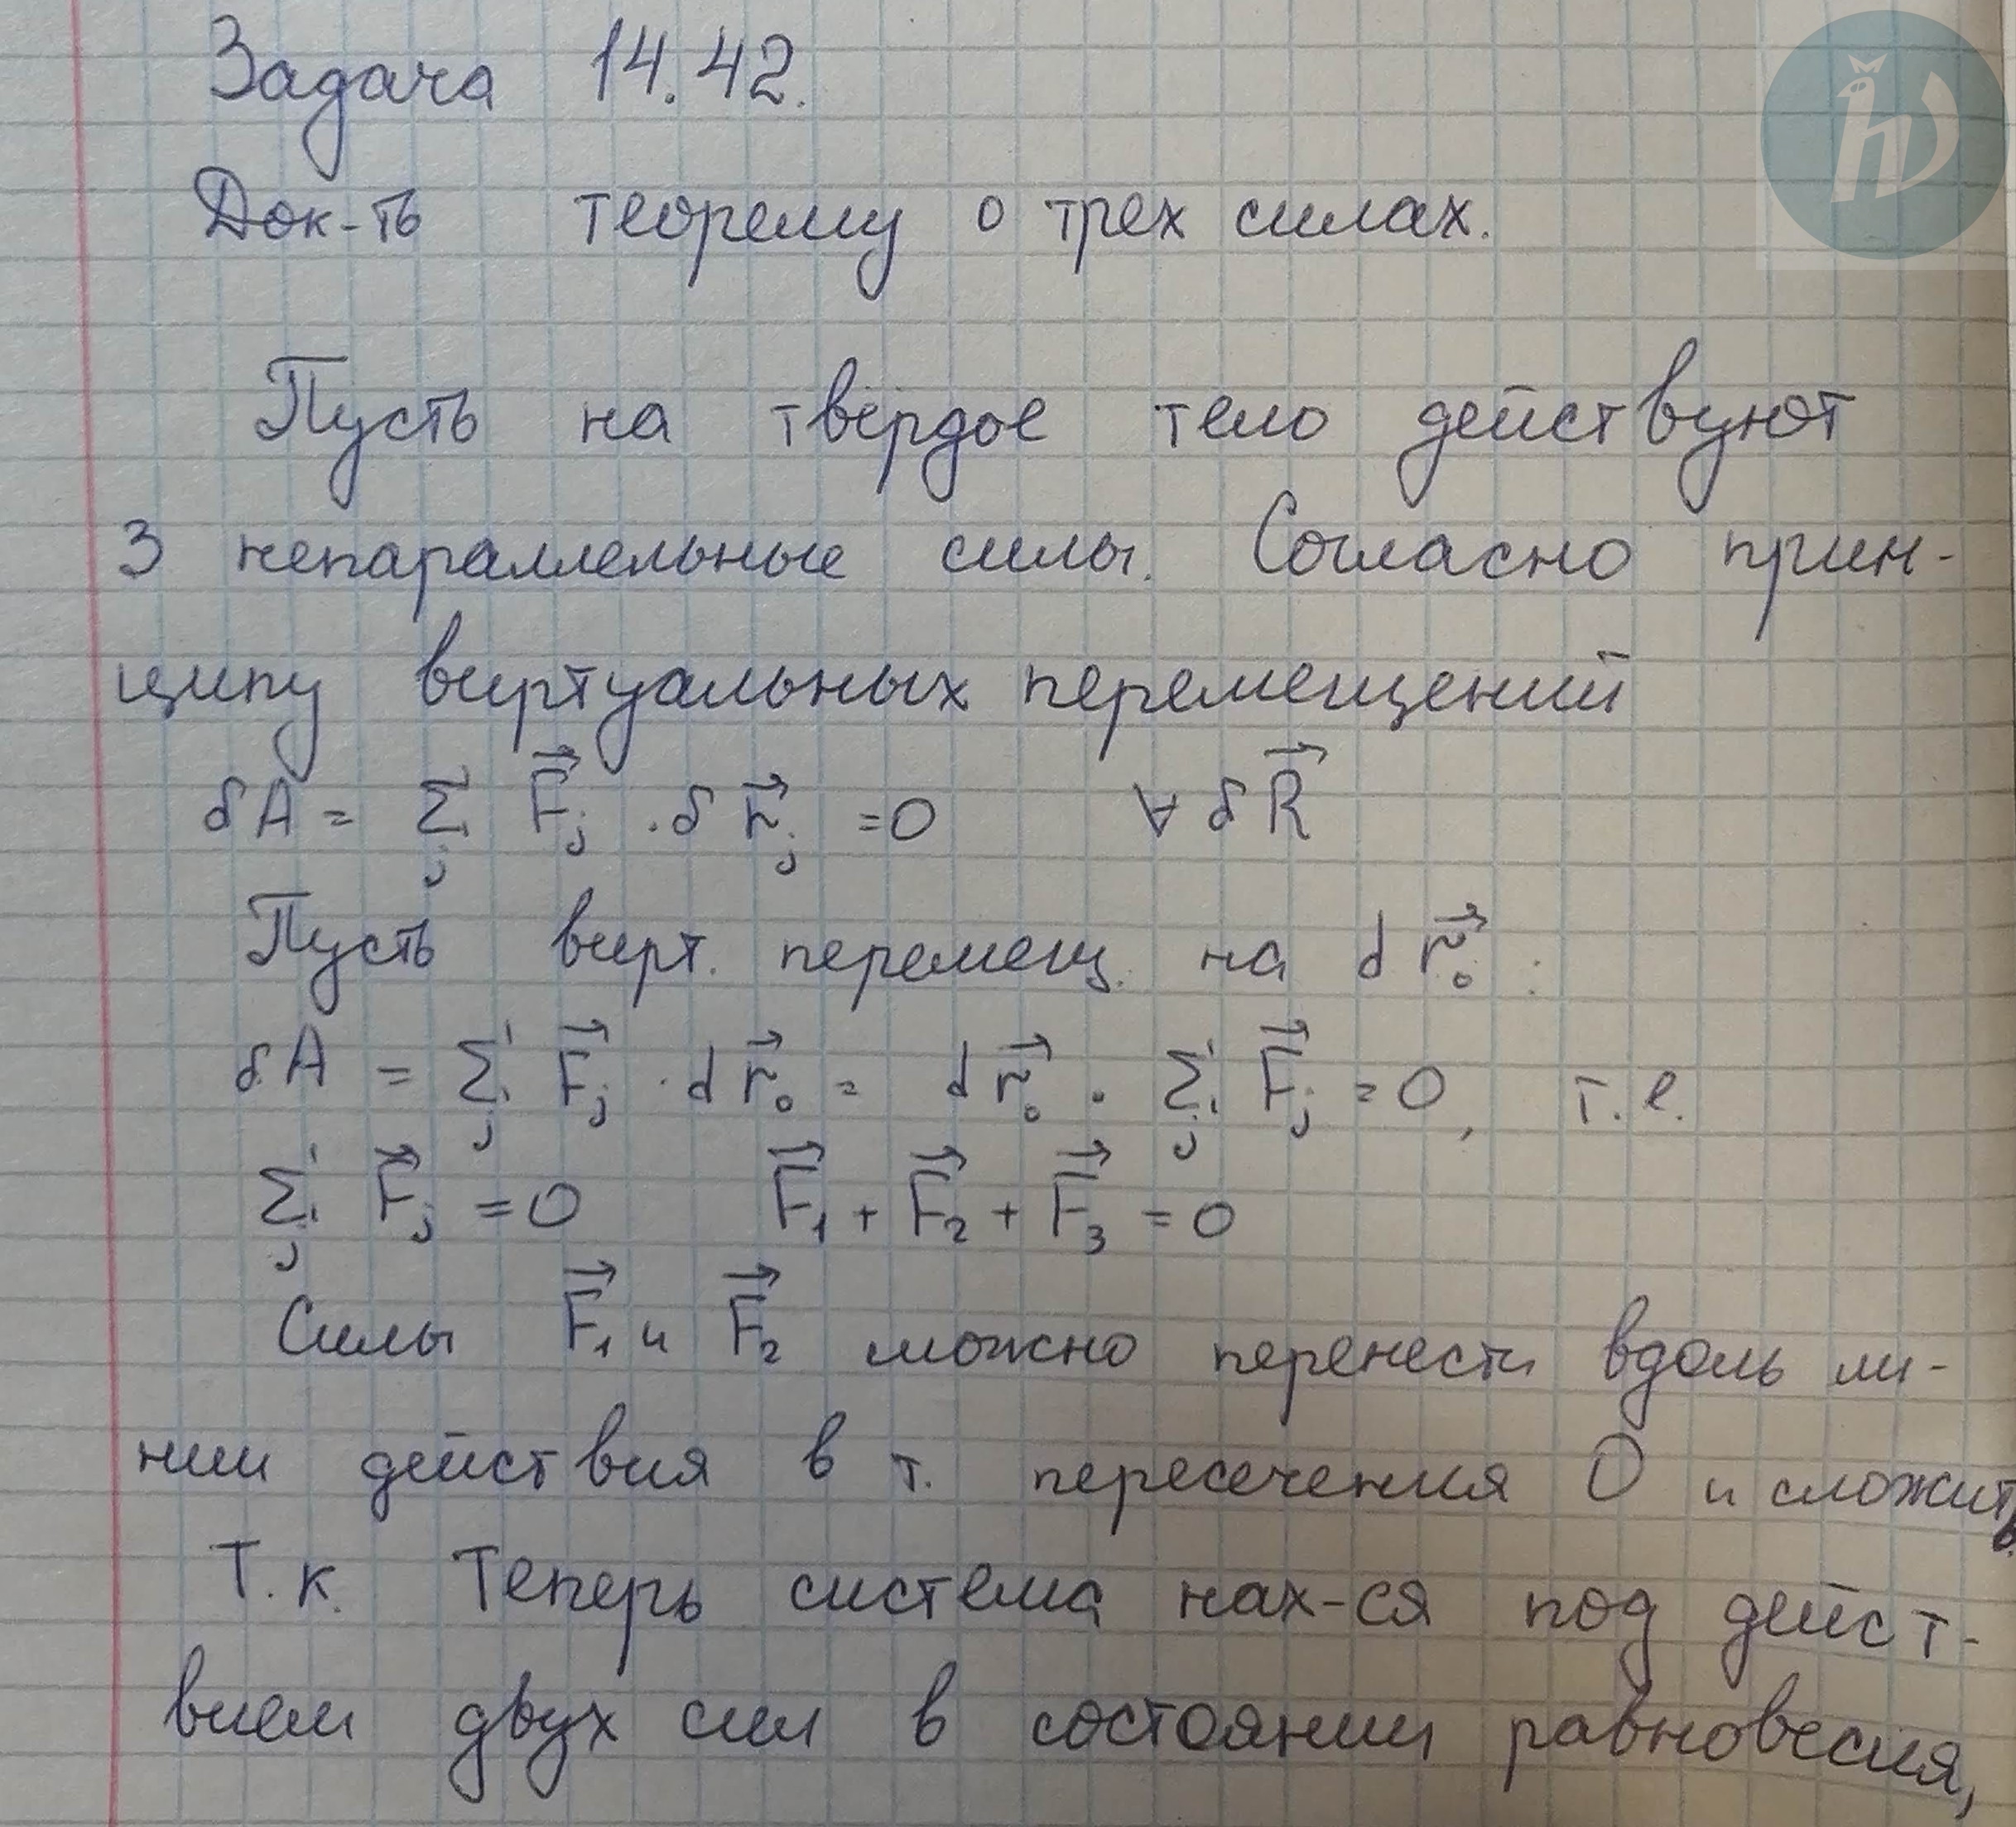 Задача 14.42.
Док-ть теорему о трех силах.
Пусть на твёрдое тело действуют
3 непараллельные силы. Согласно прин-
ципу виртуальных перемещений
δA = Σ_j F⃗_j · δr⃗_j = 0 ∀ δR⃗
Пусть вирт. перемещ. на dr⃗₀ :
δA = Σ_j F⃗_j · dr⃗₀ = dr⃗₀ · Σ_j F⃗_j = 0, т.е.
Σ_j F⃗_j = 0 F⃗₁ + F⃗₂ + F⃗₃ = 0
Силы F⃗₁ и F⃗₂ можно перенести вдоль ли-
нии действия в т. пересечения O и сложить.
Т.к. Теперь система нах-ся под дейст-
вием двух сил в состоянии равновесия,